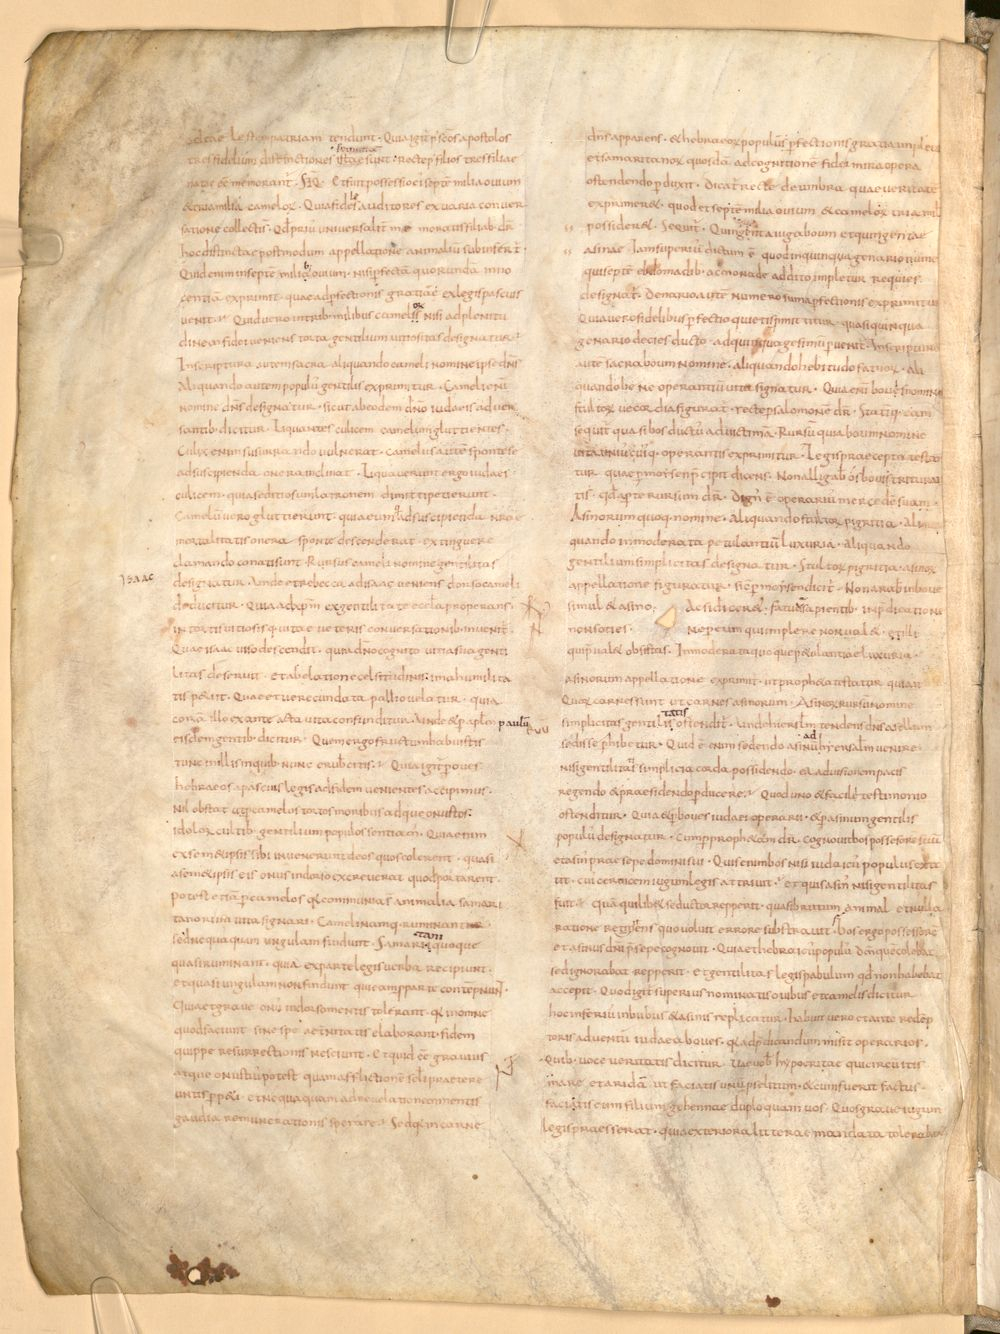 ad caelestem patriam tendunt · Quia igit͛ p̄ sc̄os apostolos
tres fidelium distinctiones vocatae sunt · recte p̄ filios tres filiae
natae eē memorant͛ · SEQ̄ · Et fuit possessio ei septē milia ovium
& tria milia camelorꝝ · Quia fideles auditores ex varia conver
satione collecti s̄ · Qd̄ prius universalit̄ memoratis filiab; dr̄
hoc distincte postmodum appellatione animaliū subinfert͛ ·
Quid enim in septē milib; ovium · nisi p̄fectā quorundā inno
centiā exprimit · quae ad p̄fectionis gratiā exlegis pascuis
venit · Quid vero in trib; milibus camelorꝝ nisi ad plenitu
dinem fidei veniens torta gentilium vitiositas designatur
In scriptura autem sacra · aliquando cameli nomine ipse dn̄s
Aliquando autem populus gentilis exprimitur · Cameli eni
nomine dn̄s designatur · sicut ab eodem dn̄o iudaeis adver
santib; dicitur · Liquantes culicem · camelum gluttientes ·
Culex enim susurrando vulnerat · camelus autē sponte se
ad suscipienda onera inclinat · Liquaverunt ergo iudaei
culicem · quia seditiosum latronem dimitti petierunt ·
Camelū vero gluttierunt · quia eum q̄ ad suscipienda nr̄e
mortalitatis onera sponte descenderat · extinguere
clamando conati sunt · Rursus cameli nomine gentilitas
isaac
designatur · Unde et rebecca ad isaac veniens dorso cameli
deducitur · Quia ad xp̄m ex gentilitate eccl̄a properans
in tortis vitiosisq; vitae veteris conversationib; invenit͛ ·
Quae isaac viso descendit · quia dn̄o cognito vitia sua genti
litas deseruit · et ab elatione celsitudinis · ima humilita
tis petiit · Quae et verecundata pallio velatur · quia
corā illo ex ante acta vita confunditur · Unde & p̄
paulū
eisdem gentib; dicitur · Quem ergo fructum habuistis
tunc in illis in quib; nunc erubescitis · Quia igit͛ p̄ oves
hebraeos a pascuis legis ad fidem venientes accipimus ·
Nil obstat ut p̄ camelos tortos moribus adque onustos
idolorꝝ cultib; gentilium populos sentiam · Quia enim
ex semetipsis sibi invenerunt deos quos colerent · quasi
a semetipsis eis onus in dorso excreverat quod portarent
potest etiā p̄ camelos qꝫ communia s̄ animalia samari
tanorū vita signari · Cameli namq; ruminant
sed nequaquam ungulam findunt · Samaritani quoque
quasi ruminant · quia ex parte legis verba recipiunt ·
et quasi ungulam non findunt quia eam ex parte contēpnunt ·
Qui et grave onus in dorso mentis tolerant · qꝫ in omne
quod faciunt sine spe aeternitatis elaborant · fidem
quippe resurrectionis nesciunt · Et quid eē gravius
atque onustius potest quam afflictionē sc̄li praetere
untis p̄peti · et nequaquam ad revelationem mentis
gaudia remunerationis sperare · Sed qꝫ in carne
dn̄s apparens · & hebraeorꝝ populus p̄fectionis gratia implevit
et samaritanorꝝ quosdā ad cognitionē fidei mira opera
ostendendo p̄duxit · Dicat͛ recte de umbra quae veritatē
exprimeret · quod et septē milia ovium & camelorꝝ tria mil
possideret · Sequit͛ · Quingenta iuga boum et quingentae
asinae · Iam superius dictum ē quod in quinquagenario nume
qui septē ebdomadib; ac monade addito impletur requies
designat͛ · Denario autē numero summa p̄fectionis exprimitur
Quia vero fidelibus p̄fectio quietis p̄mittitur · quasi quinqua
genario decies ducto · ad quinquagesimū p̄venit͛ · In scriptura
autē sacra boum nomine · aliquando hebitudo fatuorꝝ · Ali
quando bene operantiū vita signatur · Quia enī bovis nomine
stultorꝝ vecordia figurat͛ · recte p̄ salomonē dr̄ · Statim eam
sequit͛ quasi bos ductus ad victimā · Rursū quia boum nomine
vita uniuscuiusq; operantis exprimitur · Legis praecepta testan
tur · quae p̄ moysen p̄cipit dicens · Non alligabis os bovi trituran
tis · qd̄ apte rursum dr̄ · Dignꝰ ē operarius mercede sua ·
Asinorum quoq; nomine · aliquando stultorꝝ pigritia · Aliq
quando inmoderata petulantiū luxuria · aliquando
gentilium simplicitas designatur · Stultorꝝ pigritia asinorꝝ
appellatione figuratur · sic p̄ moysen dicit͛ · Non arab; in bove
simul & asino · Ac si diceret · fatuos sapientib; in p̄dicatione
non socies · Ne p̄ eum qui implere non valet · et illi
qui p̄valet obsistas · Inmoderata quoq; petulantiae luxuria
asinorum appellatione exprimit · ut prophēta testatur qui ait
Quorꝝ carnes sunt ut carnes asinorum · Asinorꝝ rursū nomine
simplicitas gentilitatis ostendit͛ · Unde hierusal̄m tendens dn̄s asellum
sedisse p̄hibetur · Quid ē enim sedendo asinū ad hierusalem venire
nisi gentilitatis simplicia corda possidendo · ea ad visionem pacis
regendo & praesidendo p̄ducere · Quod uno & facile testimonio
ostenditur · Quia & p̄ boves iudaei operarii · & p̄ asinum gentilis
populus designatur · cum p̄ prophetam dr̄ · Cognovit bos possessorē suū
et asinus praesepe domini sui · Quis enim bos nisi iudaicꝰ populus exti
tit · cui cervicem iugum legis attrivit · et quis asinꝰ nisi gentilitas
fuit · Quā quilibet seductor repperit · quasi brutum animal et nulla
ratione renitens quo voluit errore substravit · Bos ergo possessorē
et asinus dn̄i p̄sepe cognovit · Quia et hebraicꝰ populus dm̄ quē colebat
sed ignorabat repperit · et gentilitas legis pabulum qd̄ non habebat
accepit · Quod igit͛ superius nominatis ovibus et camelis dicitur
hoc inferius in bubus & asinis replicatur · Habuit vero et ante redēp
toris adventū iudaea boves · qꝫ ad p̄dicandum misit operarios ·
Quib; voce veritatis dicitur · Uae vob̄ hypocritae qui circuitis
mare · et aridā ut faciatis unū p̄selitum · & cum fuerit factus ·
facitis eum filium gehennae duplo quam vos · Quos grave iugum
legis praesserat · quia exteriora litterae mandata tolerabant